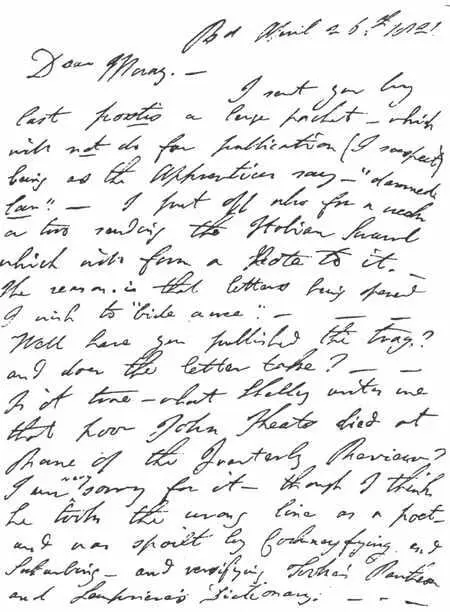 Rd April 26th 1821
Dear Moray. —
I sent you by
last postis a large packet — which
will not do for publication (I suspect)
being as the Apprentices say — "damned
low". — I put off also for a week
or two sending the Italian Scrawl
which will form a Note to it. —
The reason is that letters being opened
I wish to "bide a wee". — — —
Well have you published the trag.?
and does the letter take? — —
Is it true — what Shelley writes me
that poor John Keats died at
Rome of the Quarterly Review?
I am very sorry for it — though I think
he took the wrong line as a poet —
and was spoilt by Cockneyfying and
Suburbing — and versifying Tooke's Pantheon
and Lempriere's Dictionary. — — —